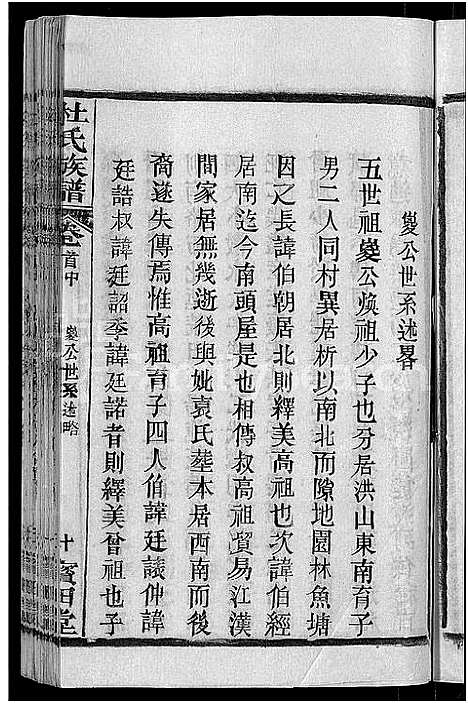 夑公世系述畧
五世祖夑公煥祖少子也分居洪山東南育子
男二人同村異居析以南北而隙地園林魚塘
因之長諱伯朝居北則繹美高祖也次諱伯經
居南迄今南頭屋是也相傳叔高祖貿易江漢
間家居無幾逝後與妣袁氏塟本居西南而後
裔遂失傳焉惟高祖育子四人伯諱廷議仲諱
廷誥叔諱廷詔季諱廷諾者則繹美曾祖也乎
杜氏族譜
卷首中
夑公世系述略
十
寳田堂